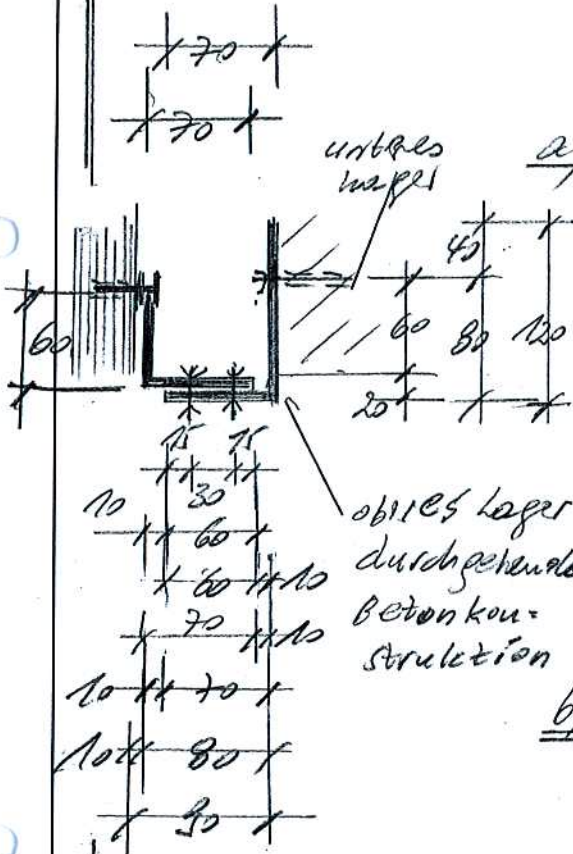 70
70
unteres
Lager
a
40
60
60
80
120
20
15 15
30
10
60
60 10
70 10
10 70
10 80
90
oberes Lager
durchgehende
Betonkon=
struktion
b